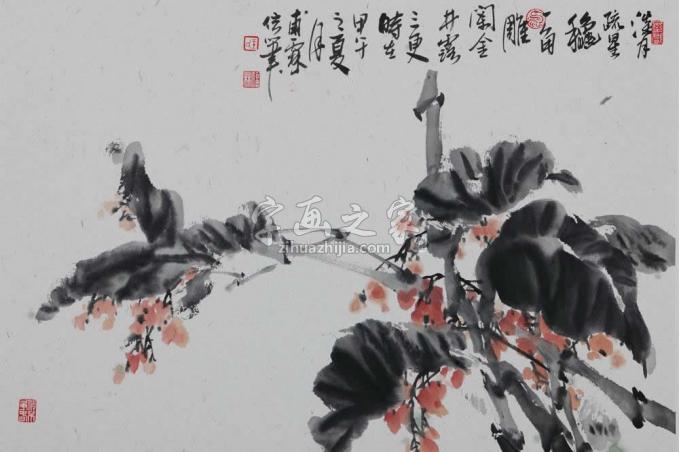 淡月
疏星
穐
一角
雕
闌金
井露
三更
時在
甲午
之夏
月
甫霖
信筆
字画之家
zihuazhijia.com